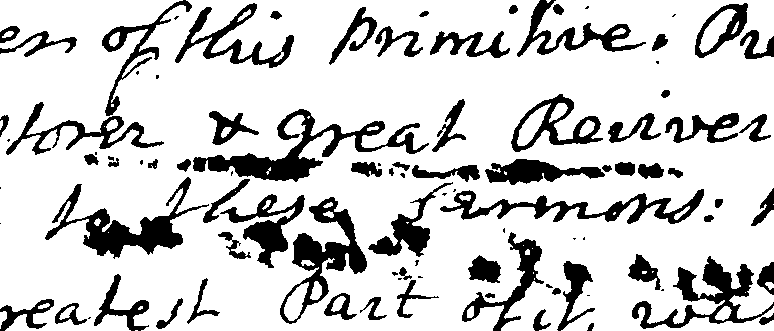 of this primitive. Pr
storer & great Reviver
to these Sermons:
reatest Part of it, was